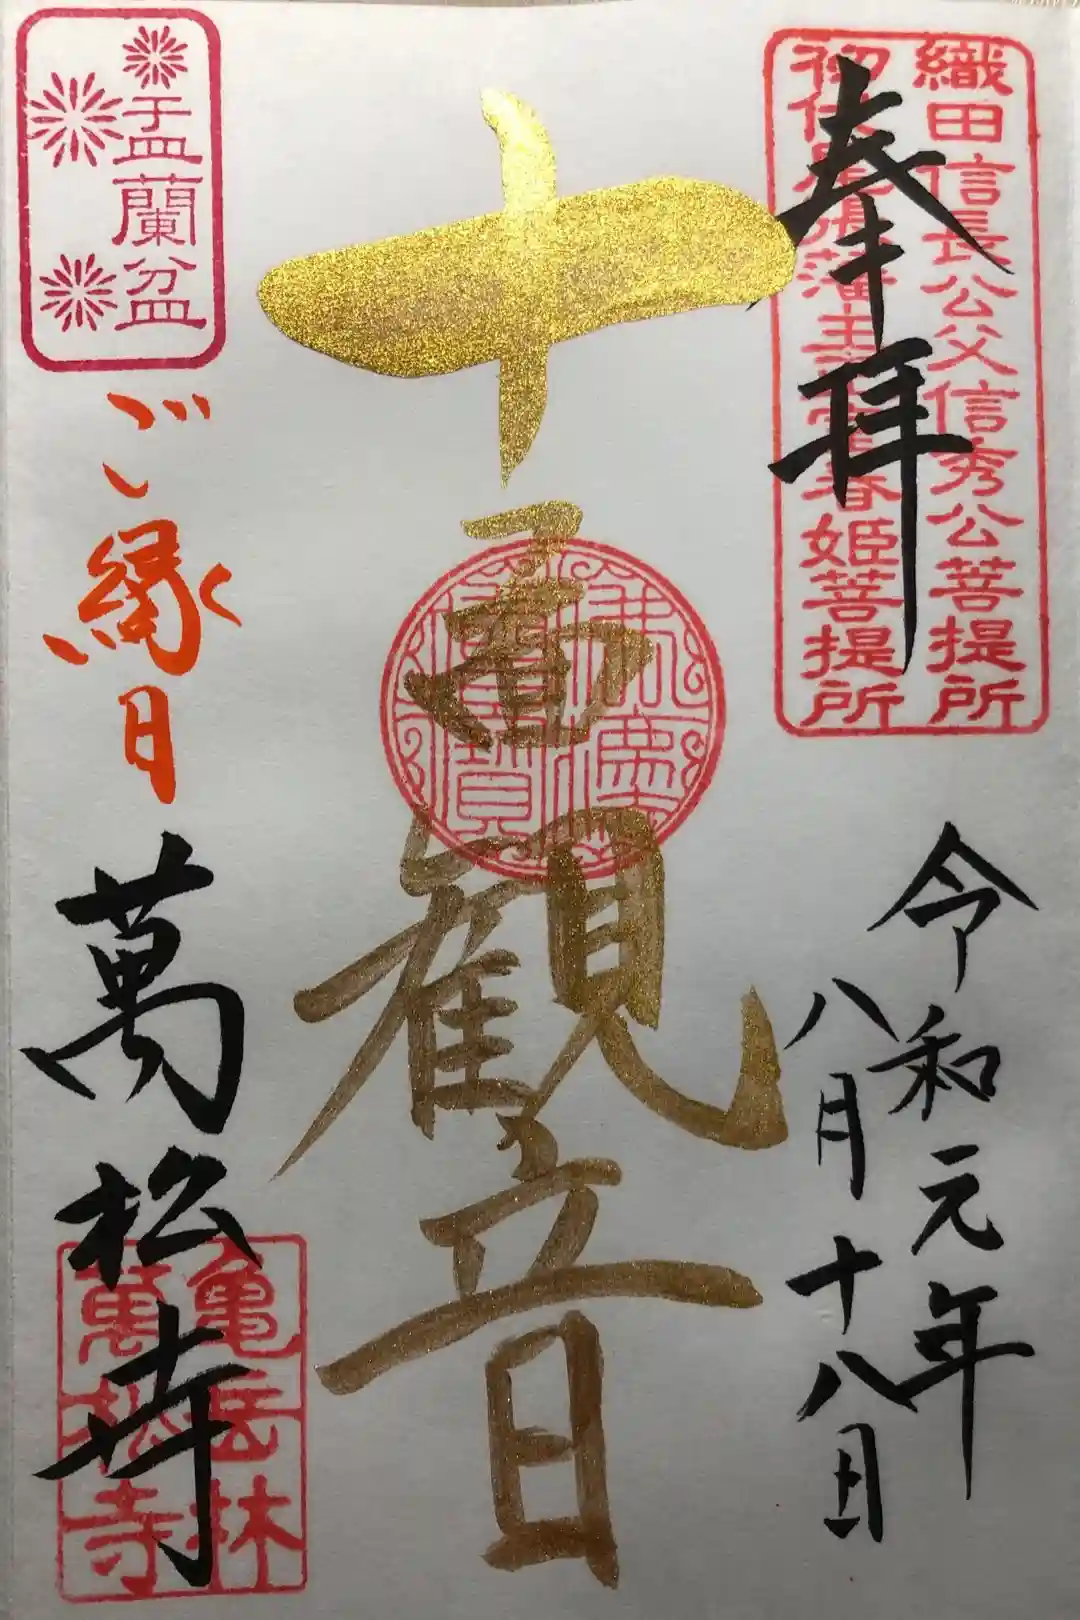 織田信長公父信秀公菩提所
初代尾張藩主正室春姫菩提所
奉拝
令和元年
八月十八日
十一面観音
盂蘭盆
ご縁日
萬松寺
亀岳林
萬松寺